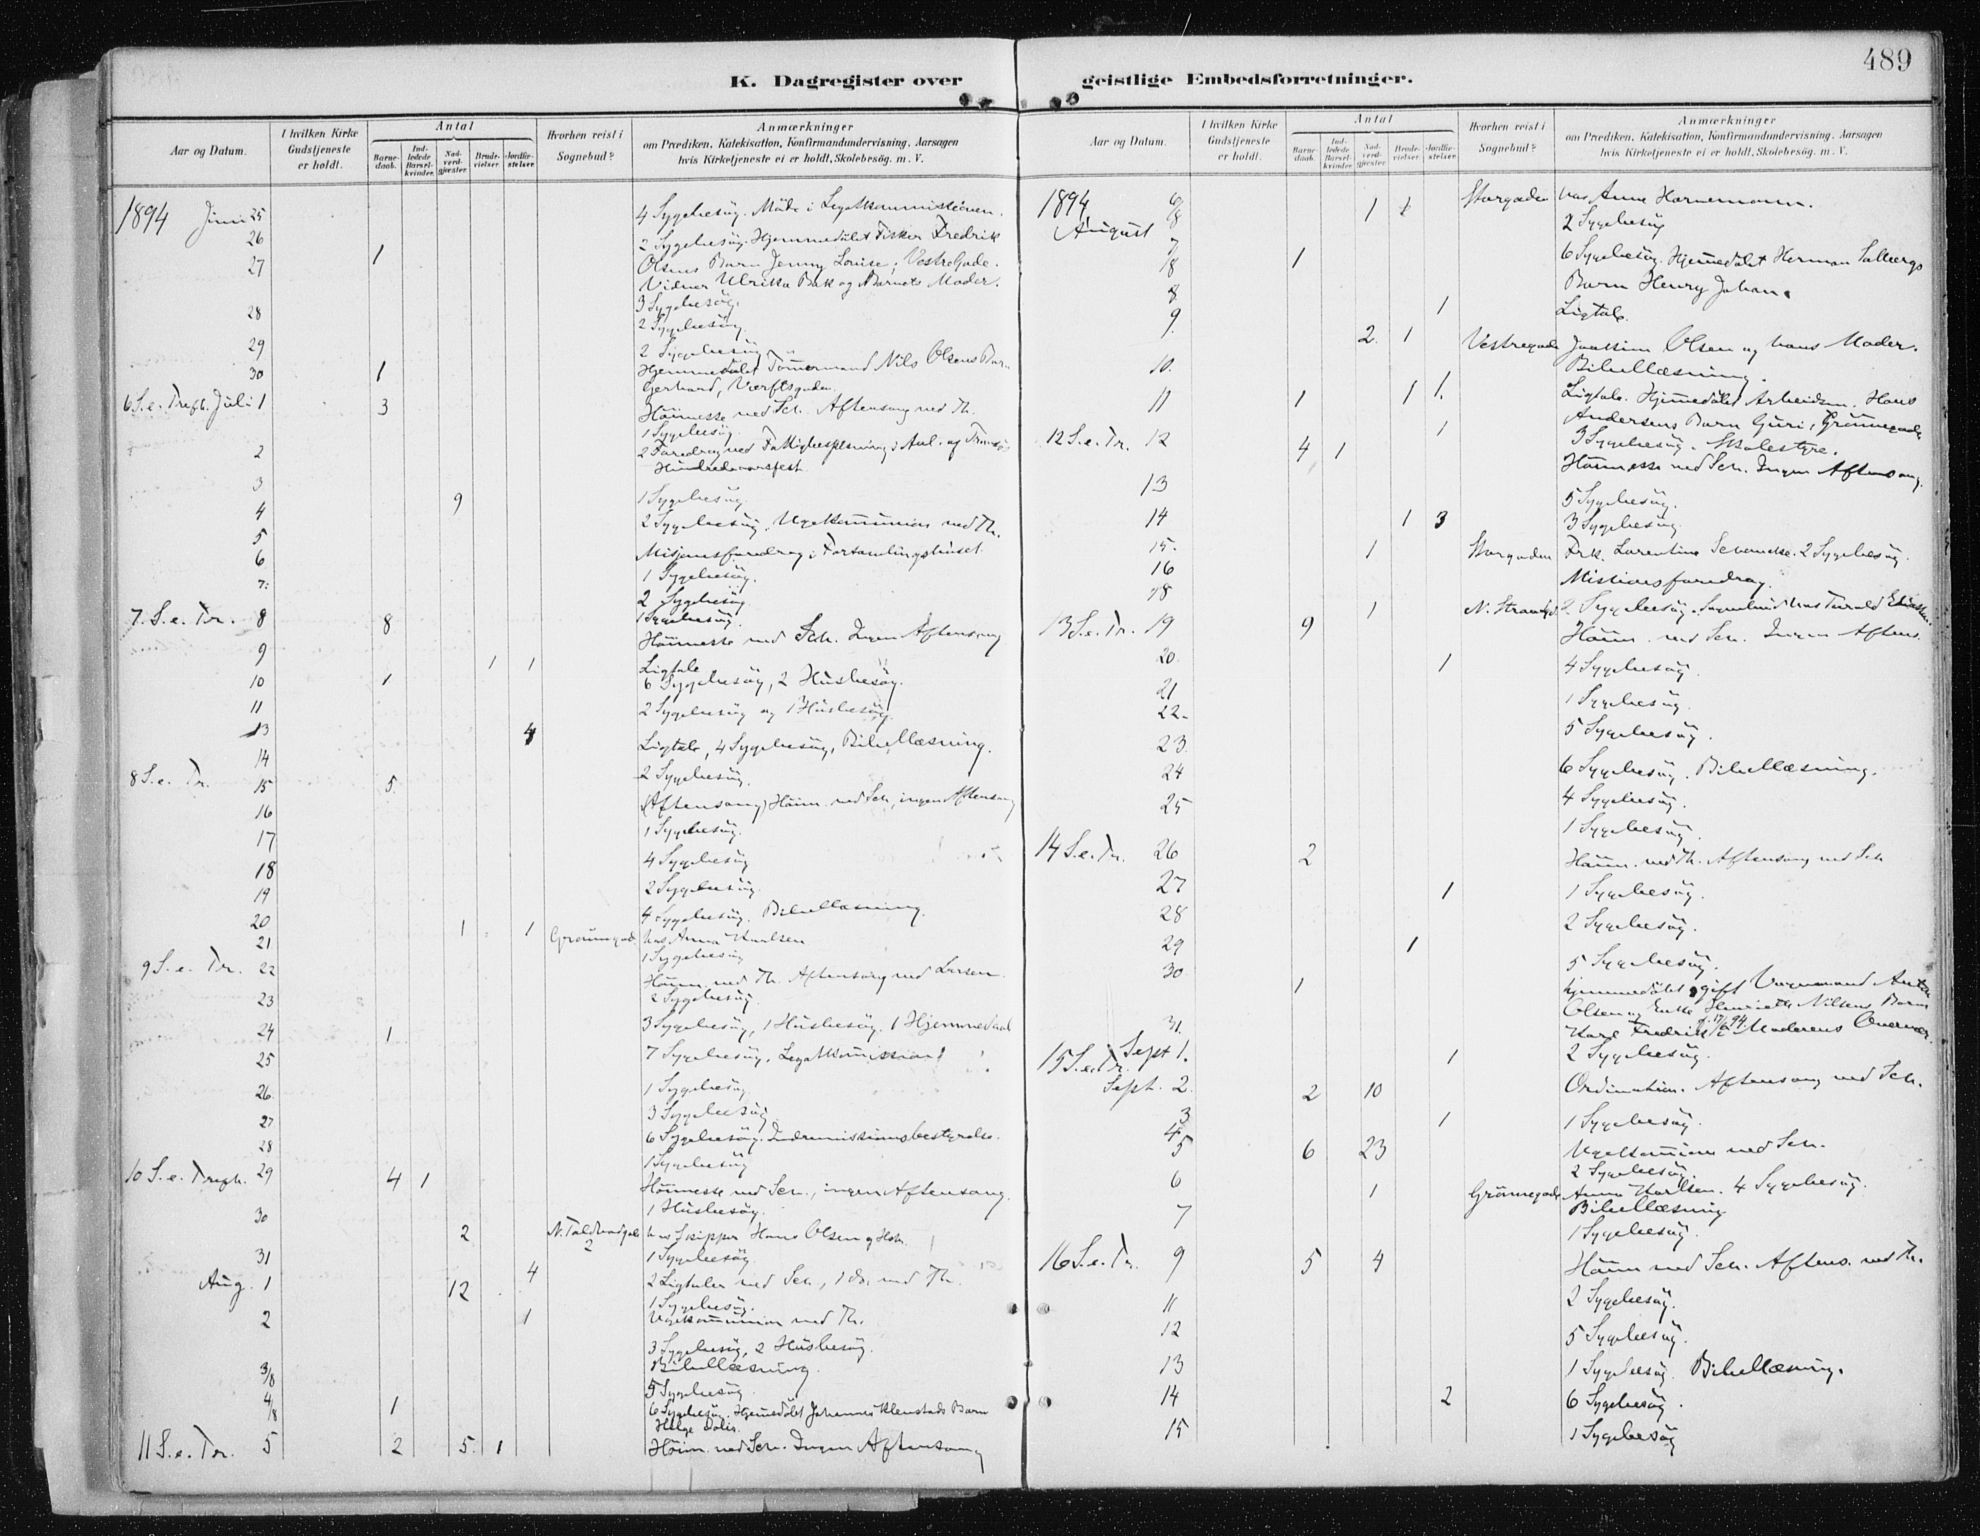 489
K. Dagregister over geistlige Embedsforretninger.
Aar og Datum.
I hvilken Kirke Gudstjeneste er holdt.
Antal
Barne-daab.
Ind-ledede Barsel-kvinder.
Nad-verd-gjæster
Brude-vielser.
Jordfæ-stelser
Hvorhen reist i Sognebud?
Anmærkninger
om Prædiken, Katekisation, Konfirmandundervisning, Aarsagen
hvis Kirketjeneste ei er holdt, Skolebesög. m. V.
1894 Juni 25 4 Sygebesøg. Möde i Legatkommissionen.
26 1 2 Sygebesøg. Hjemmedöbt Fisker Fredrik
27 Olsens Barn Jenny Louise, Vestregade.
Vidner Ulrikka Bak og Barnets Moder.
3 Sygebesøg.
28 2 Sygebesøg.
29 2 Sygebesøg
30 1 Hjemmedöbt Tömermand Nils Olsens Barn
Gerhard, Værftsgaden.
6 S. e. Trefh. Juli 1 3 Höimesse ved Sch. Aftensang ved Th.
1 Sygebesøg.
2 2 Foredrag ved Fattigbespisning i Anl. af Tromsø
Hundredeaarsfest.
3 1 Sygebesøg.
4 9 2 Sygebesøg. Ugekommunion ved Th.
5 Misjonsforedrag i Forsamlingshuset.
6 1 Sygebesøg.
7. 2 Sygebesøg
1 Sygebesøg.
7. S. e. Tr. 8 8 Höimesse ved Sch. Ingen Aftensang
9 1 1 Ligtale
10 1 6 Sygebesøg, 2 Husbesøg.
11 2 Sygebesøg og 1 Husbesøg.
13 4 Ligtale, 4 Sygebesøg, Bibellæsning.
14 2 Sygebesøg.
8 S. e. Tr. 15 5. (Aftensang) Höim. ved Sch, ingen Aftensang
16 1 Sygebesøg.
17 4 Sygebesøg
18 2 Sygebesøg.
19 4 Sygebesøg. Bibellæsning.
20 1 1 Grönnegade hos Anna Karlsen
21 1 Sygebesøg
9 S. e. Tr. 22 Höim. ved Th. Aftensang ved Larsen.
2 Sygebesøg.
23 3 Sygebesøg, 1 Husbesøg. 1 Hjemmedaab
24 1 7 Sygebesøg. Legatkommission
25 1 Sygebesøg
26 3 Sygebesøg
27 6 Sygebesøg. Indremissionsbestyrelse.
28 1 Sygebesøg
10 S. e. Trefh. 29 4 1 Höimesse ved Sch., ingen Aftensang.
1 Husbesøg.
30 2 N. Toldbodgade 2 hos Skipper Hans Olsen
31 1 Sygebesøg
4 2 Ligtaler ved Sch., 1 do. ved Th.
Aug. 1 12 1 Sygebesøg.
2 1 Ugekommunion ved Th.
3 Sygebesøg, 2 Husbesøg.
3/8 Bibellæsning.
5 Sygebesøg
4/8 1 6 Sygebesøg. Hjemedöbt Johannes Barn
Helge
11 S. e. Tr. 5 2 5. 1 Höim. ved Sch. Ingen Aftensang
Aar og Datum.
I hvilken Kirke Gudstjeneste er holdt.
Antal
Barne-daab.
Ind-ledede Barsel-kvinder
Nad-verd-gjæster
Brude-vielser.
Jordfæ-stelser
Hvorhen reist i Sognebud?
Anmærkninger
om Prædiken, Katekisation, Konfirmandundervisning, Aarsagen
hvis Kirketjeneste ei er holdt, Skolebesög. m. V.
1894 August 6/8 1 1 Storgaden hos Anne Hornemann.
2 Sygebesøg
7/8 1 6 Sygebesøg. Hjemmedöbt Herman Solbergs
Barn Henry Johan.
8 1 Ligtale.
9. 2. 1 Vestregade Joakim Olsen og hans Moder.
10. Bibellæsning.
11 1 1 1. Ligtale. Hjemedöbt Arbeidsm. Hans
Andersens Barn Guri, Grönnegade
1 3 Sygebesøg. Skolestyre.
12 S. e. Tr. 12 4 1 Höimesse ved Sch. Ingen Aftensang.
13 5 Sygebesøg.
14 1 3 3 Sygebesøg
15. 1 Storgaden Frk. Larentine 2 Sygebesøg.
16 Missionsforedrag.
18 1 N. Strandgd. 2 Sygebesøg. Sognebud hos
13 S. e. Tr. 19 9 Höim. ved Sch. Ingen Aftens.
20. 1 4 Sygebesøg.
21 1 Sygebesøg.
22. 5 Sygebesøg.
23. 6 Sygebesøg. Bibellæsning.
24 4 Sygebesøg.
25 1 Sygebesøg.
14 S. e. Tr. 26 2 Höim. ved Th. Aftensang ved Sch
27 1 1 Sygebesøg.
28 2 Sygebesøg.
29 1 5 Sygebesøg.
30 1 hjemmedöbt gift Anton
Olsen og Enke Henriette Nilsens Barn
31. Karl Fredrik f. 17/6 94. Moderens
Sept 1. 1 2 Sygebesøg.
15 S. e. Tr. Sept. 2. 2 10 Ordination. Aftensang ved Sch.
3 1 1 Sygebesøg.
4 Ugekommunion ved Sch.
5 6 23 2 Sygebesøg.
6 1 Grönnegade Anna Karlsen. 4 Sygebesøg.
Bibellæsning
7 1 Sygebesøg.
16 S. e. Tr. 9 5 4 Höim ved Sch. Aftens. ved Th.
11 2 Sygebesøg.
12 5 Sygebesøg.
13 1 Sygebesøg. Bibellæsning.
14 2 6 Sygebesøg.
15 1 Sygebesøg